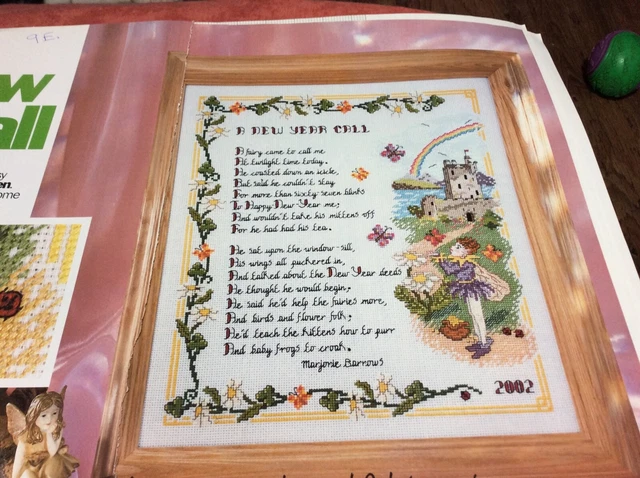 9E.
w
all
A NEW YEAR CALL
A fairy came to call me
At twilight time today.
He coasted down an icicle,
But said he couldn't stay
For more than sixty-seven blinks
To Happy-New-Year me;
And wouldn't take his mittens off
For he had had his tea.
He sat upon the window-sill,
His wings all puckered in,
And talked about the New Year deeds
He thought he would begin;
He said he'd help the fairies more,
And birds and flower folk;
He'd teach the kittens how to purr
And baby frogs to croak.
Marjorie Barrows
2002